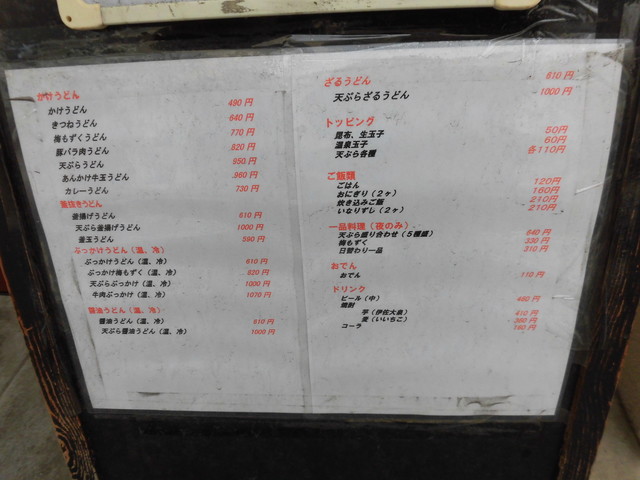 かけうどん
かけうどん 490 円
きつねうどん 640 円
梅もずくうどん 770 円
豚バラ肉うどん 820 円
天ぷらうどん 950 円
あんかけ牛玉うどん 960 円
カレーうどん 730 円
釜抜きうどん
釜揚げうどん 610 円
天ぷら釜揚げうどん 1000 円
釜玉うどん 590 円
ぶっかけうどん（温、冷）
ぶっかけうどん（温、冷） 610 円
ぶっかけ梅もずく（温、冷） 820 円
天ぷらぶっかけ（温、冷） 1000 円
牛肉ぶっかけ（温、冷） 1070 円
醤油うどん（温、冷）
醤油うどん（温、冷） 610 円
天ぷら醤油うどん（温、冷） 1000 円
ざるうどん 610 円
天ぷらざるうどん 1000 円
トッピング
昆布、生玉子 50円
温泉玉子 60円
天ぷら各種 各110円
ご飯類
ごはん 120円
おにぎり（２ヶ） 160円
炊き込みご飯 210円
いなりずし（２ヶ） 210円
一品料理（夜のみ）
天ぷら盛り合わせ（５種盛） 640 円
梅もずく 330 円
日替わり一品 310 円
おでん
おでん 110 円
ドリンク
ビール（中） 460 円
焼酎
芋（伊佐大泉） 410 円
麦（いいちこ） 360 円
コーラ 180 円